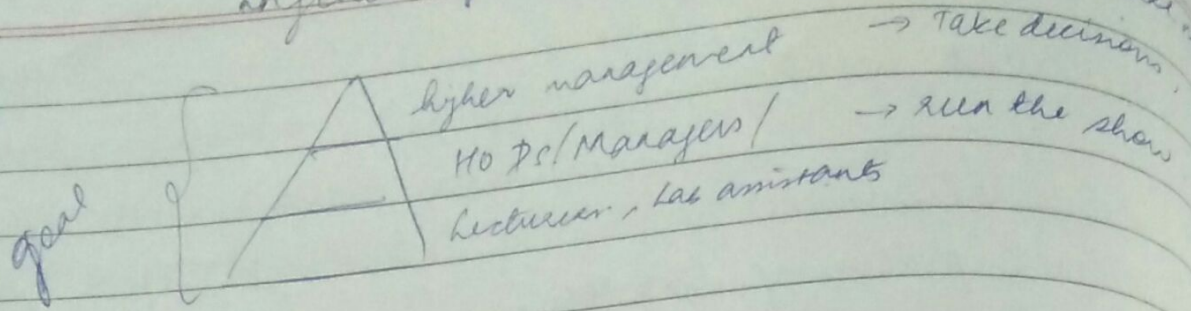 higher management → Take decisions,
HODs/Managers/ → run the show
Lecturer, Lab assistants
goal